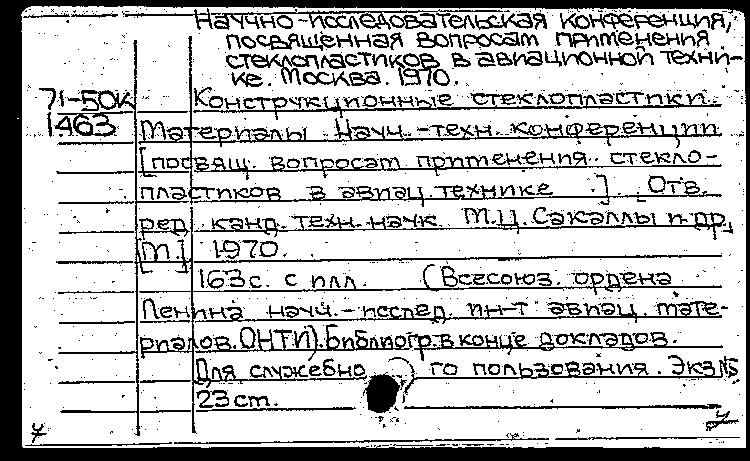 Научно-исследовательская конференция,
посвященная вопросам применения
стеклопластиков в авиационной техни-
ке. Москва. 1970.
71-50к Конструкционные стеклопластики.
1463 Материалы науч.-техн. конференции
[посвящ. вопросам применения стекло-
пластиков в авиац. технике]. Отв.
ред. канд. техн. наук М.Ц. Сакаллы и др.
[М.] 1970.
163 с. с илл. (Всесоюз. ордена
Ленина науч.-исслед. ин-т авиац. мате-
риалов. ОНТИ). Библиогр. в конце докладов.
Для служебно го пользования. Экз №
23 ст.